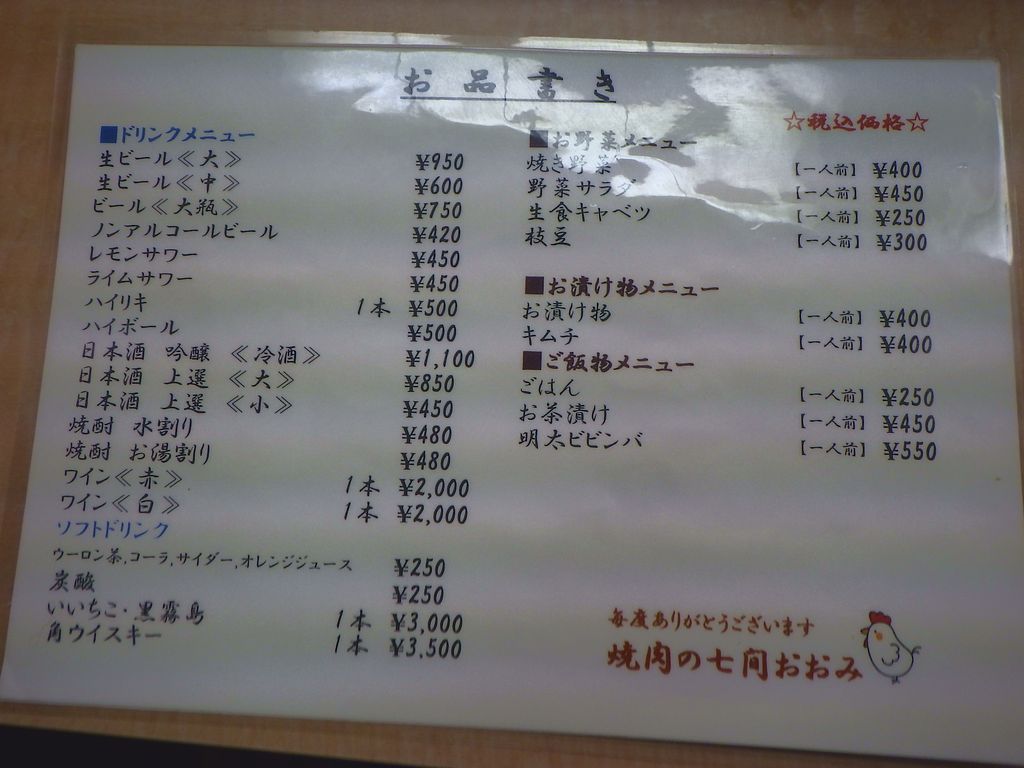 お品書き
☆税込価格☆
■ドリンクメニュー
生ビール≪大≫ ¥950
生ビール≪中≫ ¥600
ビール≪大瓶≫ ¥750
ノンアルコールビール ¥420
レモンサワー ¥450
ライムサワー ¥450
ハイリキ 1本 ¥500
ハイボール ¥500
日本酒 吟醸 ≪冷酒≫ ¥1,100
日本酒 上選 ≪大≫ ¥850
日本酒 上選 ≪小≫ ¥450
焼酎 水割り ¥480
焼酎 お湯割り ¥480
ワイン≪赤≫ 1本 ¥2,000
ワイン≪白≫ 1本 ¥2,000
ソフトドリンク
ウーロン茶,コーラ,サイダー,オレンジジュース ¥250
炭酸 ¥250
いいちこ・黒霧島 1本 ¥3,000
角ウイスキー 1本 ¥3,500
■お野菜メニュー
焼き野菜 【一人前】 ¥400
野菜サラダ 【一人前】 ¥450
生食キャベツ 【一人前】 ¥250
枝豆 【一人前】 ¥300
■お漬け物メニュー
お漬け物 【一人前】 ¥400
キムチ 【一人前】 ¥400
■ご飯物メニュー
ごはん 【一人前】 ¥250
お茶漬け 【一人前】 ¥450
明太ビビンバ 【一人前】 ¥550
毎度ありがとうございます
焼肉の七間おおみ